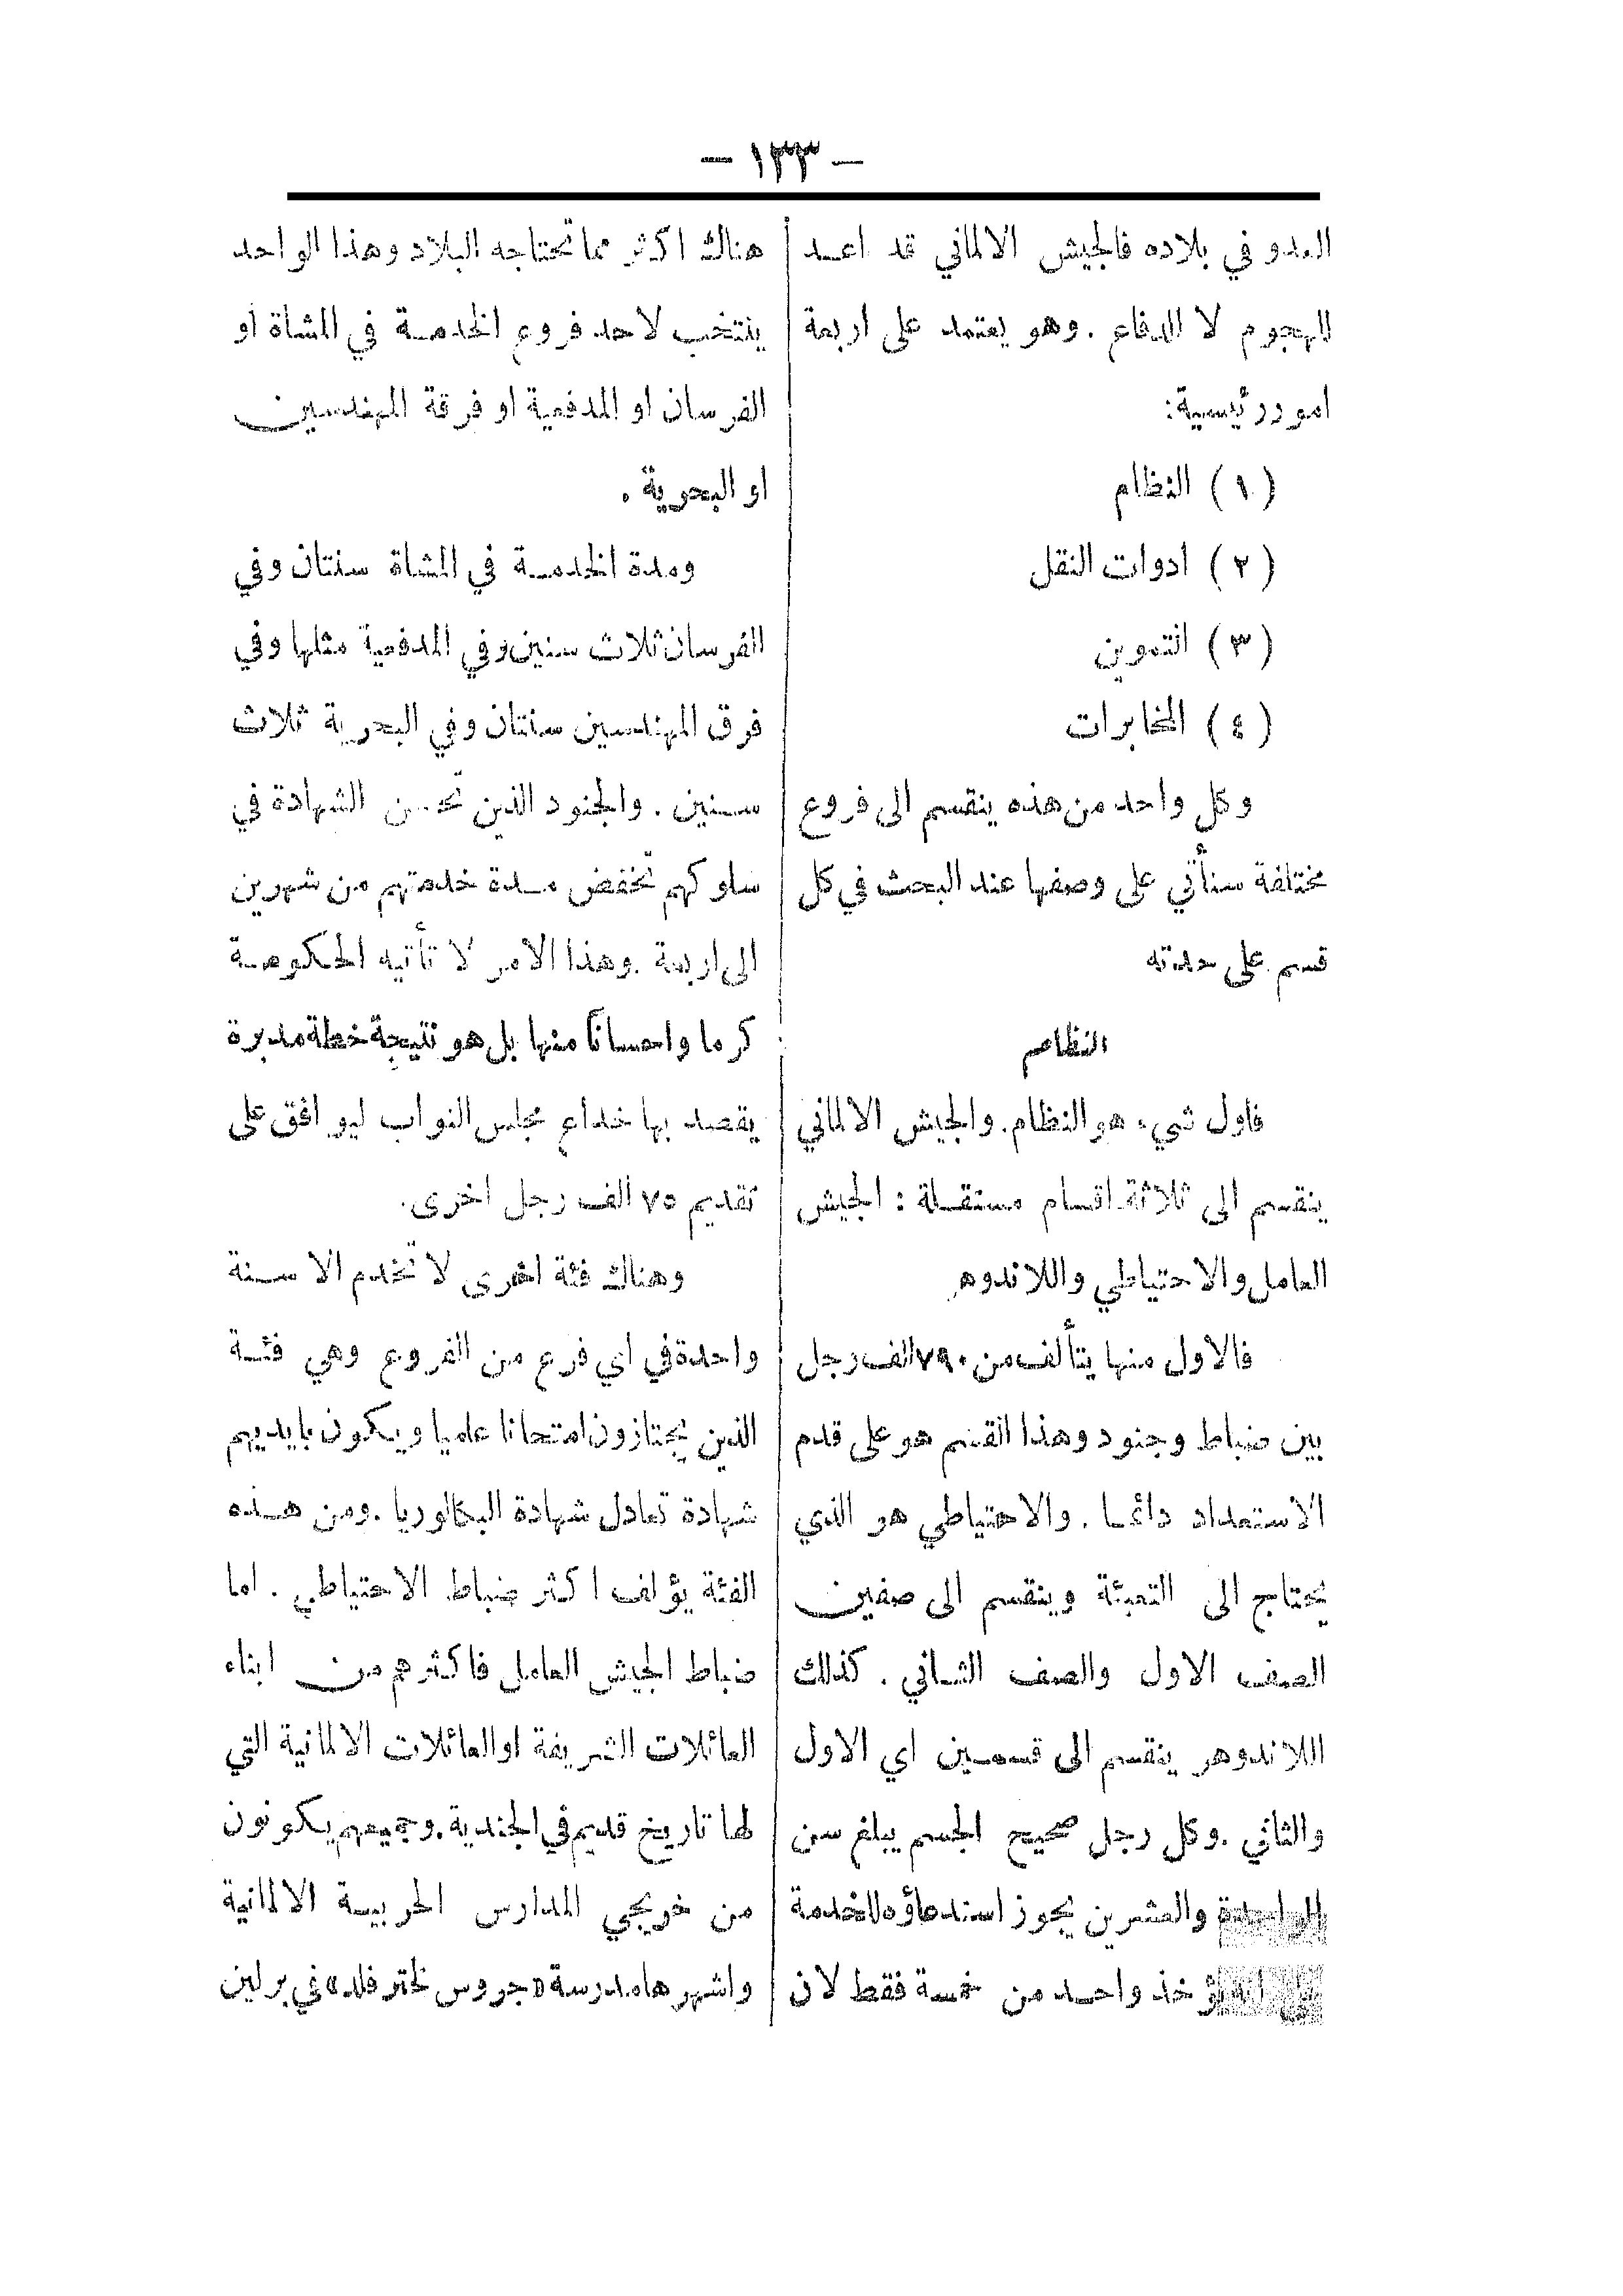 – ١٣٣ –
العدو في بلاده فالجيش الالماني قد اعــد
للهجوم لا للدفاع . وهو يعتمد على اربعة
امور رئيسية:
(١) النظام
(٢) ادوات النقل
(٣) التموين
(٤) المخابرات
وكل واحد من هذه ينقسم الى فروع
مختلفة سنأتي على وصفها عند البحث في كل
قسم على حدته
النظام
فاول شيء هو النظام . والجيش الالماني
ينقسم الى ثلاثة اقسام مستقــلة : الجيش
العامل والاحتياطي واللاندوهر
فالاول منها يتألف من ٧٩٠ الف رجل
بين ضباط وجنود وهذا القسم هو على قدم
الاستعداد دائمــا . والاحتياطي هو الذي
يحتاج الى التعبئة وينقسم الى صفين
الصف الاول والصف الثــاني . كذلك
اللاندوهر ينقسم الى قسمــين اي الاول
والثاني . وكل رجل صحيح الجسم يبلغ سن
الواحدة والعشرين يجوز استدعاؤه للخدمة
انه يؤخذ واحــد من خمسة فقط لان
هناك اكثر مما تحتاجه البلاد وهذا الواحد
ينتخب لاحد فروع الخدمــة في المشاة او
الفرسان او المدفعية او فرقة المهندسين
او البحرية .
ومدة الخدمــة في المشاة سنتان وفي
الفرسان ثلاث سنين وفي المدفعية مثلها وفي
فرق المهندسين سنتان وفي البحرية ثلاث
ســنين . والجنود الذين تحسن الشهادة في
سلوكهم تخفض مــدة خدمتهم من شهرين
الى اربعة . وهذا الامر لا تأتيه الحكومــة
كرما واحسانًا منها بل هو نتيجة خطة مدبرة
يقصد بها خداع مجلس النواب ليوافق على
تقديم ٧٥ الف رجل اخرى .
وهناك فئة اخرى لا تخدم الا ســنة
واحدة في اي فرع من الفروع وهي فئــة
الذين يجتازون امتحانا علميا ويكون بايديهم
شهادة تعادل شهادة البكالوريا . ومن هــذه
الفئة يؤلف اكثر ضباط الاحتياطي . اما
ضباط الجيش العامل فاكثرهم من ابناء
العائلات الشريفة او العائلات الالمانية التي
لها تاريخ قديم في الجندية . وجميعهم يكونون
من خريجي المدارس الحربيــة الالمانية
واشهرها مدرسة «جروس لختر فلد» في برلين